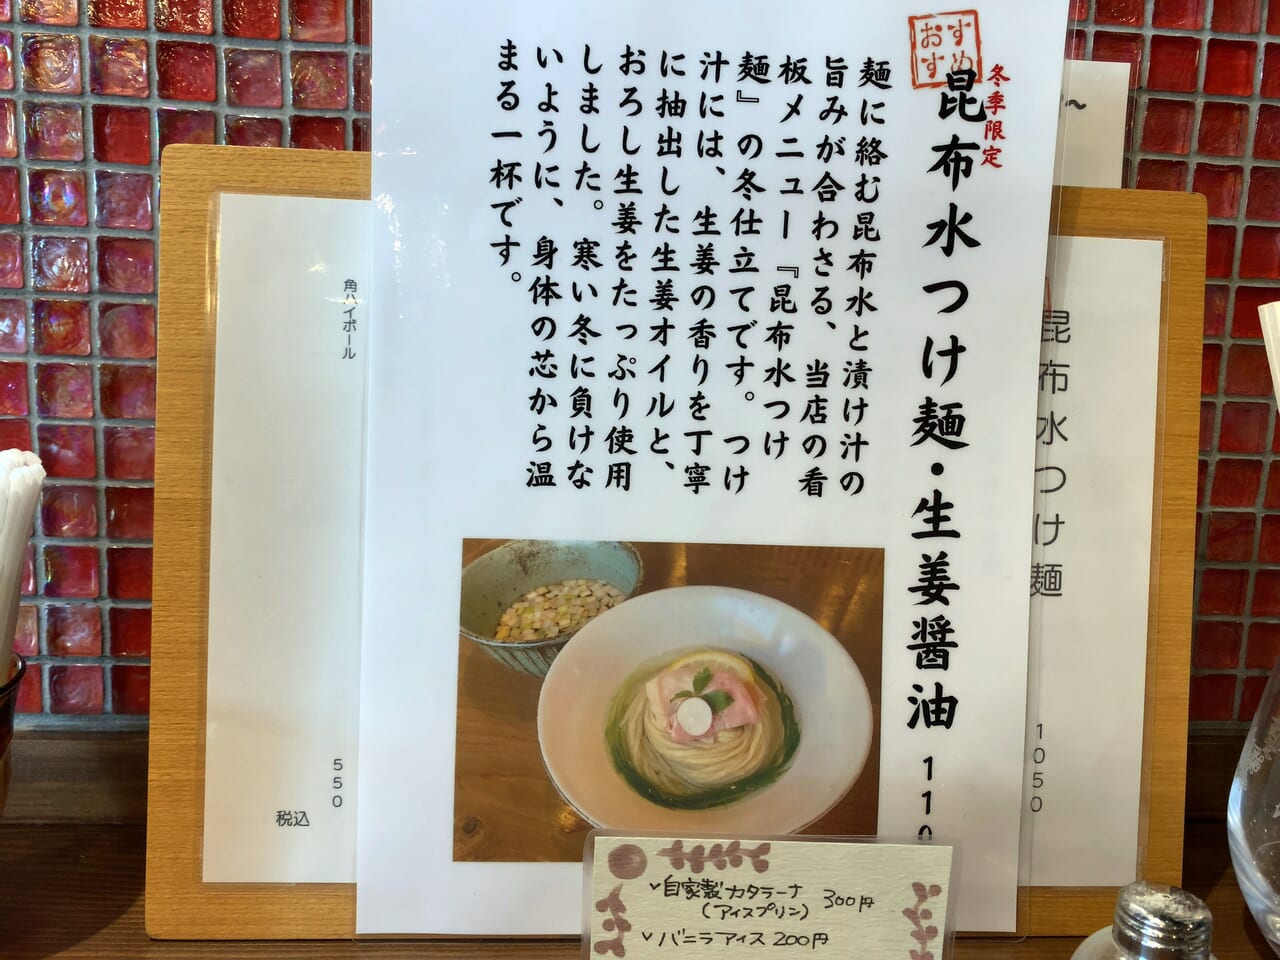 おすすめ
冬季限定
昆布水つけ麺・生姜醤油 110
麺に絡む昆布水と漬け汁の
旨みが合わさる、当店の看
板メニュー『昆布水つけ
麺』の冬仕立てです。つけ
汁には、生姜の香りを丁寧
に抽出した生姜オイルと、
おろし生姜をたっぷり使用
しました。寒い冬に負けな
いように、身体の芯から温
まる一杯です。
〜
昆布水つけ麺
1050
角ハイボール
550
税込
自家製カタラーナ 300円
(アイスプリン)
バニラアイス 200円